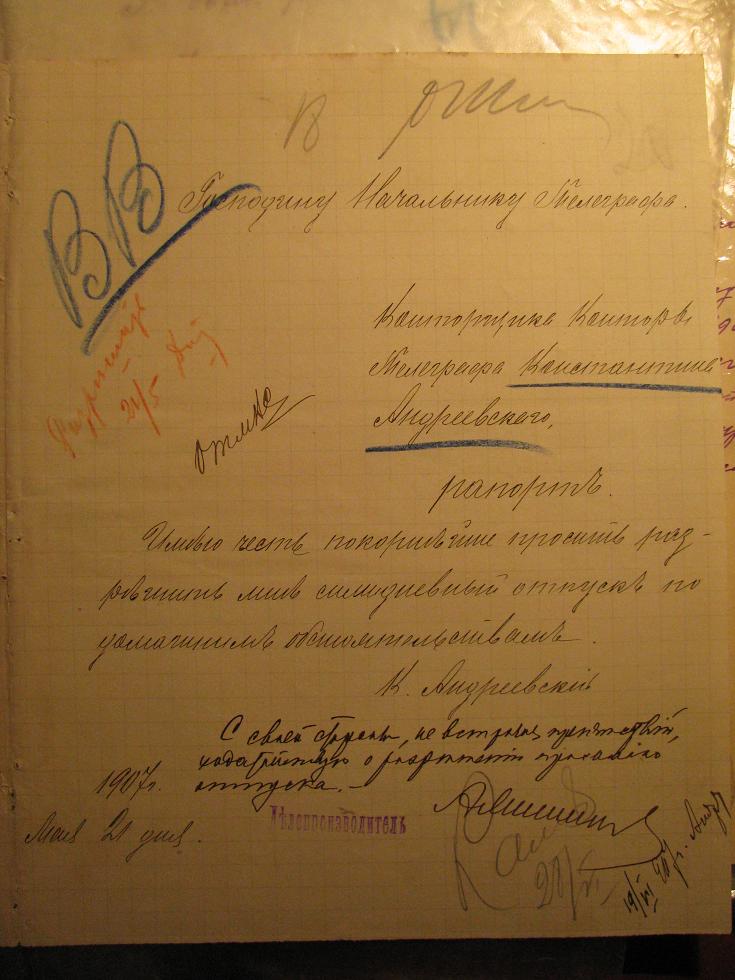 ВВ
Господину Начальнику Телеграфа.
Конторщика Конторы
Телеграфа Константина
Андреевскаго,
21/5
рапортъ.
Имѣю честь покорнѣйше просить раз-
рѣшить мнѣ семидневный отпускъ по
домашнимъ обстоятельствамъ.
К. Андреевскій
С своей стороны, не встрѣчая препятствій,
ходатайствую о разрѣшеніи
отпуска. –
1907г.
Мая 21 дня.
Дѣлопроизводитель